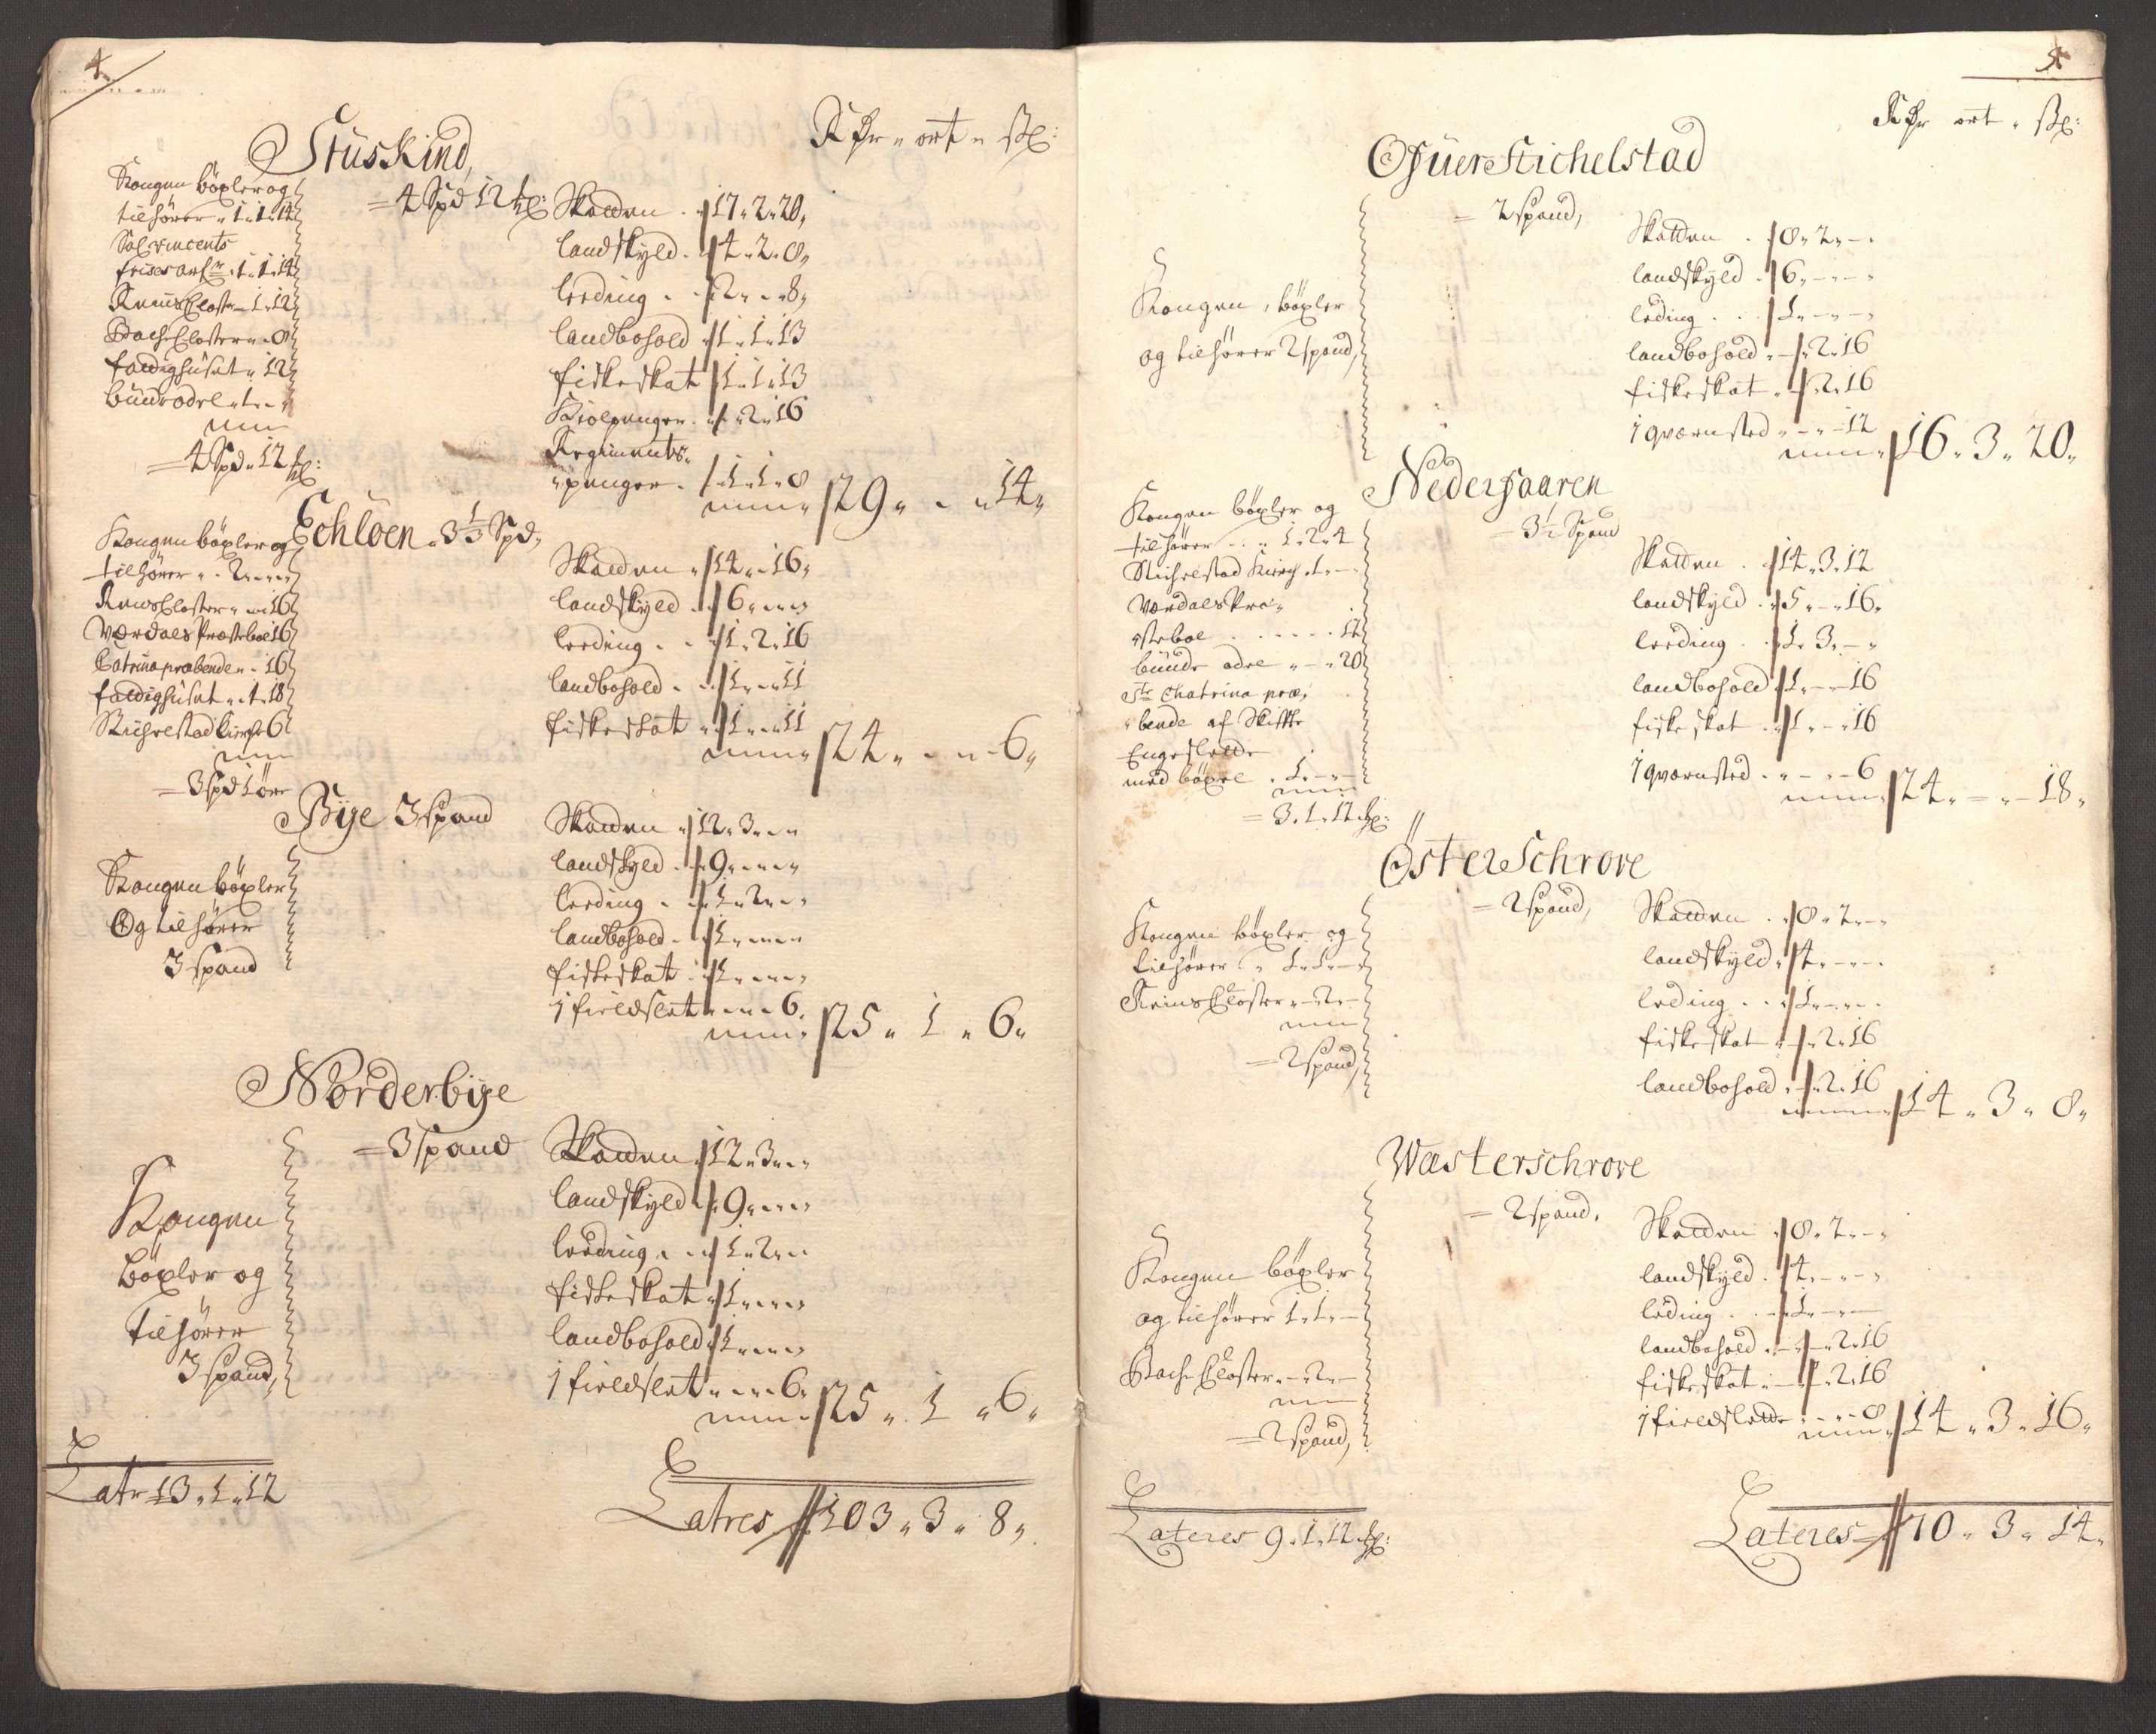 4.
Rdr " ort " sk:
Stuskind,
= 4 Spd 12 mk:
Kongen böxler og
tilhører " 1 " 1 " 14
Sal Vincents
frises arf: " 1 " 1 " 14
Reins Closter " 1 " 12
Bache Closter " " 8
fattighuset " 12
bunde odel " 1 " "
= 4 Spd " 12 mk:
Skatten " 17 " 2 " 20 "
landskyld " 4 " 2 " 8 "
leeding " 2 " " 8 "
landbohold " 1 " 1 " 13
fiskeskat 1 " 1 " 13
Kiolpenger " " 2 " 16
Regiments "
" penger " 1 " 1 " 8
29 " " 14 "
Echloen " 3 1/3 Spd "
Kongen böxler og
tilhører " 2 " " "
Reins Closter " " 16
Værdals Præstebol 16
Catrina præbende " 16
fattighuset " 1 " 18
Stichelstad Kirch 6
= 3 Spd 1 öre
Skatten " 14 " " 16 "
landskyld " 6 " " "
leeding " 1 " 2 " 16
landbohold " 1 " " 11
fiskeskat " 1 " " 11
24 " " " 6 "
Bye 3 Spand
Kongen böxler
Og tilhører
3 Spand
Skatten " 12 " 3 " "
landskyld " 9 " " "
leeding " 1 " 2 " "
landbohold " 1 " " "
fiskeskat " 1 " " "
1 fieldslet " " " 6 "
25 " 1 " 6 "
Nørderbye
= 3 spand
Kongen
böxler og
tilhører
3 spand,
Skatten 12 " 3 " "
landskyld " 9 " " "
leeding " 1 " 2 " "
fiskeskat " 1 " " "
landbohold " 1 " " "
1 fieldslet " " " 6 "
25 " 1 " 6 "
Latr 13 " 1 " 12
Latres 103 " 3 " 8 "
5
Rdr ort " sk:
Ofuer Stichelstad
= 2 spand,
Kongen, böxler
og tilhører 2 spand,
Skatten " 8 " 2 " – "
landskyld " 6 " – " –
leding " 1 " – " –
landbohold " – " 2 " 16
fiskeskat " – " 2 " 16
1 qværnsted " – " – 12
16 " 3 " 20 "
Nederhaaren
= 3 1/2 Spand
Kongen böxler og
tilhører " 1 " 2 " 4
Stichelstad Kirch " 1 " –
Værdals Præ "
" stebol . . . . . 12
bunde odel " – " 20
Ste Chatrina præ "
" bende af Skifte
Engeslette
med böxel " 1 " – "
= 3 " 1 " 12 mk:
Skatten " 14 " 3 " 12
landskyld " 5 " – " 16 "
leeding " 1 " 3 " – "
landbohold " 1 " – " 16
fiske skat " 1 " – " 16
1 qværnsted " – " – 6
24 " – " – 18 "
Öster Schrove
= 2 spand,
Kongen böxler og
tilhører " 1 " 1 " –
Reins Closter " – 2 " –
= 2 spand,
Skatten " 8 " 2 " – "
landskyld " 4 " – " –
leding " 1 " – " –
fiskeskat " – " 2 " 16
landbohold " – " 2 " 16
14 " 3 " 8 "
Wæsterschrove
= 2 spand,
Kongen böxler
og tilhører 1 " 1 " –
Bache Closter " – 2 " –
= 2 spand,
Skatten " 8 " 2 " – "
landskyld " 4 " – " – "
leding " 1 " – " –
landbohold " – " 2 " 16
fiskeskat " – " 2 " 16
1 fieldslette " – " – 8
14 " 3 " 16 "
Lateres 9 " 1 " 12 mk:
Lateres 70 " 3 " 14 "